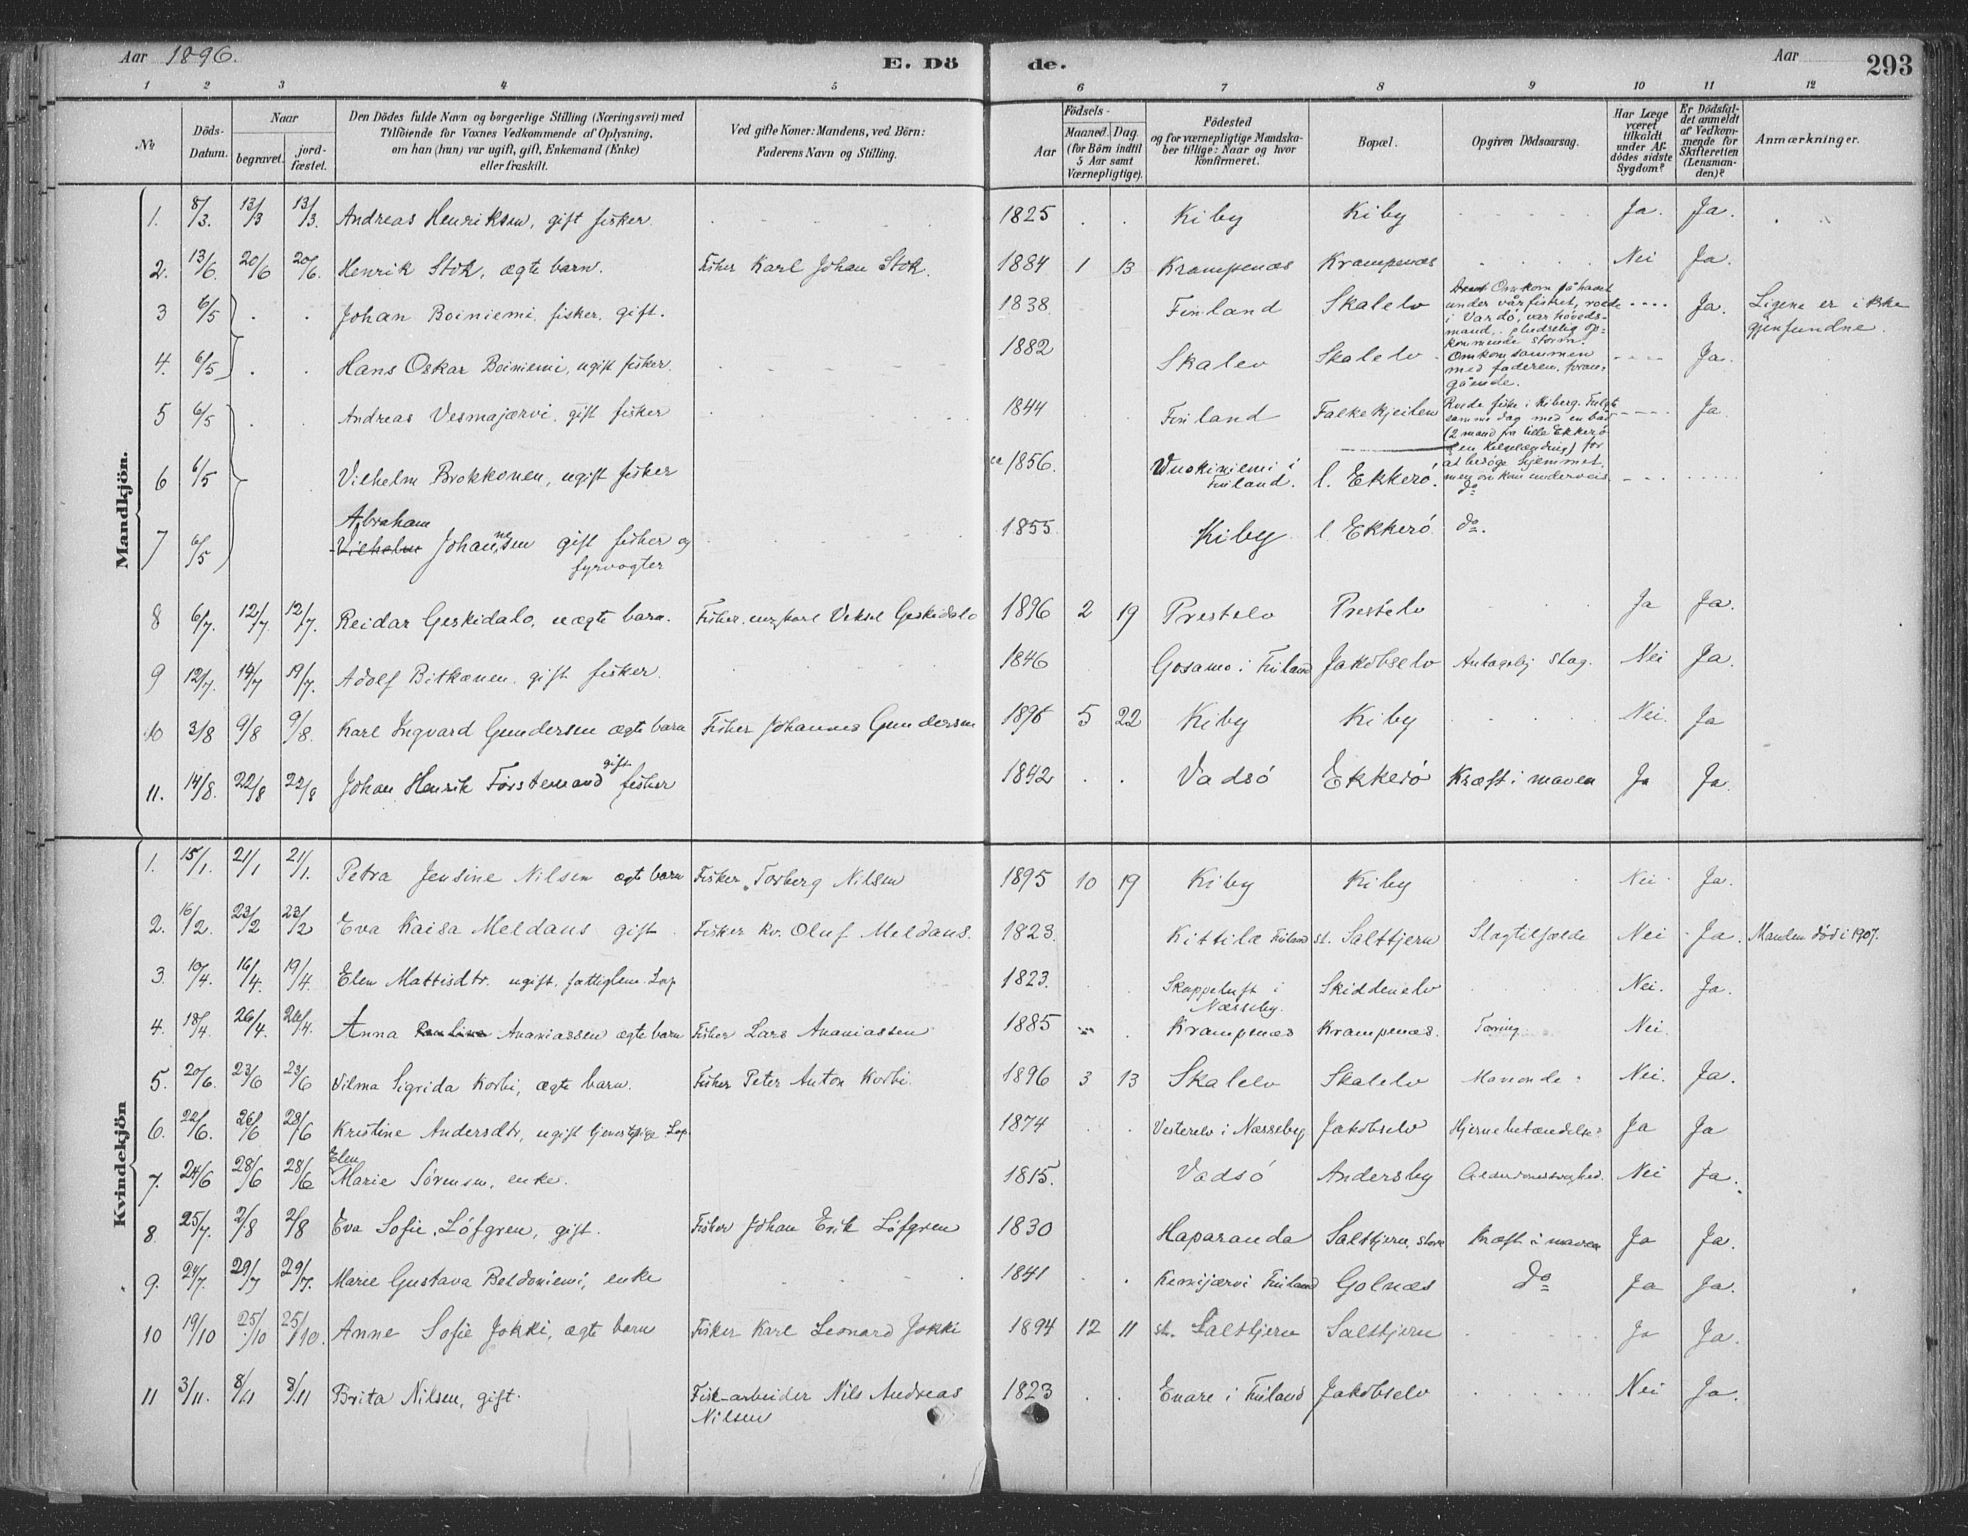 Aar 1896.
E. Dö de.
Aar
293
1 2 3 4 5 6 7 8 9 10 11 12
No
Döds-Datum.
Naar
begravet.
jordfæstet.
Den Dödes fulde Navn og borgerlige Stilling (Næringsvei) med
Tilföiende for Voxnes Vedkommende af Oplysning,
om han (hun) var ugift, gift, Enkemand (Enke)
eller fraskilt.
Ved gifte Koner: Mandens, ved Börn:
Faderens Navn og Stilling.
Födsels-
Aar
Maaned. Dag.
(for Börn indtil
5 Aar samt
Værnepligtige).
Födested
og for værnepligtige Mandskaber tillige: Naar og hvor
konfirmeret.
Bopæl.
Opgiven Dödsaarsag.
Har Læge
været
tilkaldt
under Afdödes sidste
Sygdom?
Er Dödsfaldet anmeldt
af Vedkommende for
Skifteretten
(Lensmanden)?
Anmærkninger.
Mandkjön.
1. 8/3. 13/3 13/3. Andreas Henriksen, gift fisker. 1825 Kiby Kiby Ja. Ja.
2. 13/6. 20/6 20/6. Henrik Stok, ægte barn. Fisker Karl Johan Stok. 1884 1 13 Krampenæs Krampenæs Nei Ja.
3 6/5 Johan Boiniemi, fisker, gift. 1838. Finland Skalelv Omkom på havet
under vårfisket, roede
i Vardö, var hóvedsmand. pludselig opkommende storm. Ja. Ligene er ikke
gjenfundne.
4. 6/5 Hans Oskar Boiniemi, ugift fisker. 1882 Skalev Skalelv Omkom sammen
med faderen, foran-
gående. Ja.
5 6/5 Andreas Vesmajærvi, gift fisker 1844 Finland Falkekjeilen Roede fiske i Kiberg. Fulgte
samme dag med en båd
(2 mand fra lille Ekkerö
for
at besöge hjemmet.
men omkom underveis. Ja
6 6/5 Vilhelm Brokkonen, ugift fisker 1856. i
Finland. l. Ekkerö. do
7 6/5 Abraham
Vilhelm Johannesen gift fisker og
fyrvogter 1855 Kiby l. Ekkerö do.
8 6/7. 12/7. 12/7. Reidar Geskidalo, uægte barn. Fisker, ungkarl Geskidalo 1896 2 19 Prestelv Prestelv Ja Ja.
9 12/7. 14/7 19/7. Adolf Bitkænen, gift fisker. 1846 Gosamo i Finland Jakobselv Antagelig slag. Nei Ja.
10 3/8 9/8 9/8. Karl Ingvard Gundersen ægte barn Fisker Johannes Gundersen 1895 5 22 Kiby Kiby Nei. Ja
11. 14/8. 22/8 22/8 Johan Henrik Förstemand gift fisker 1842 Vadsö Ekkerö Kræft i maven Ja Ja.
Kvindekjön
1. 15/1. 21/1 21/1. Petra Jensine Nilsen ægte barn Fisker Torberg Nilsen 1895 10 19 Kiby Kiby Nei Ja.
2. 16/2. 23/2 23/2 Eva Kaisa Meldaus gift Fisker kv. Oluf Meldaus. 1823. Kittilæ Finland st. Saltkjern Slagtilfælde Nei Ja. Manden död i 1907.
3. 10/4. 16/4. 19/4. Elen Mattisdtr. ugift, fattiglem. Lap 1823. i
Næsseby. Skiddenelv Nei. Ja.
4. 18/4 26/4. 26/4. Anna Pauline Ananiassen ægte barn Fisker Lars Ananiassen 1885 Krampenæs Krampenæs. Tæring Nei.
5. 20/6. 23/6 23/6 Vilma Sigrida Korbi, ægte barn. Fisker Peter Anton Korbi. 1896 3 13 Skalelv Skalelv Nei. Ja.
6. 22/6. 26/6 28/6 Kristine Andersdtr, ugift tjenestepige Lap 1874 Vesterelv i Næsseby Jakobselv Hjernebetændelse Ja Ja
7. 24/6 28/6 28/6 Elen
Marie Sörensen, enke. 1815. Vadsö Andersby Alderdomssvaghed. Nei Ja.
8. 25/7. 2/8 2/8 Eva Sofie Löfgren, gift. Fisker Johan Erik Löfgren 1830 Haparanda Saltkjern, store Kræft i maven Ja Ja.
9. 24/7. 29/7 29/7. Marie Gustava Beldoniemi, enke 1841 Kemijærvi Finland Golnæs do Ja Ja.
10 19/10 25/10 25/10. Anne Sofie Jokki, ægte barn Fisker Karl Leonard Jokki 1894 12 11 st. Saltkjern Saltkjern Ja Ja.
11 3/11. 8/11 8/11 Brita Nilsen, gift. Fisk-arbeider Nils Andreas
Nilsen 1823 Enare i Finland Jakobselv Nei Ja.